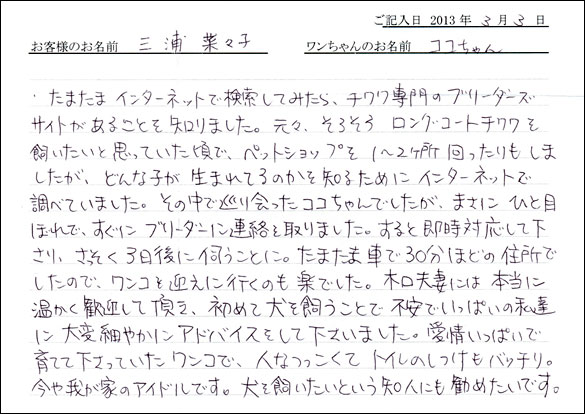 ご記入日 2013年 3月 3日
お客様のお名前 三浦 菜々子 ワンちゃんのお名前 ココちゃん
・たまたま インターネットで検索してみたら、チワワ専門のブリーダーズ
サイトがあることを知りました。元々、そろそろ ロングコートチワワを
飼いたいと思っていた頃で、ペットショップを 1〜2ヶ所 回ったりも しま
したが、どんな子が 生まれてるのかを 知るために インターネットで
調べていました。その中で巡り会ったココちゃんでしたが、まさに ひと目
ぼれで、すぐに ブリーダーに連絡を取りました。すると即時対応して下
さり、さっそく 3日後に 伺うことに。たまたま 車で 30分ほどの 住所で
したので、ワンコを迎えに行くのも 楽でした。木口夫妻には 本当に
温かく歓迎して頂き、初めて犬を飼うことで 不安でいっぱいの私達
に 大変細やかに アドバイスをして下さいました。愛情いっぱいで
育てて下さっていた ワンコで、人なつっこくて トイレのしつけも バッチリ。
今や我が家のアイドルです。犬を飼いたいという知人にも 勧めたいです。